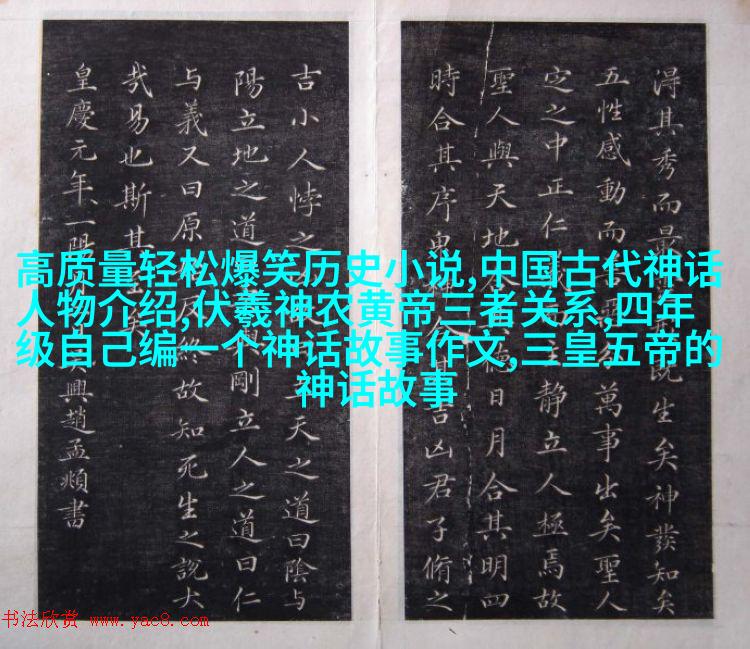 高质量轻松爆笑历史小说,中国古代神话
人物介绍,伏羲神农黄帝三者关系,四年
级自己编一个神话故事作文,三皇五帝的
神话故事
淂其秀而最既生矣神發知矣
五性感動而分萬事出矣聖人
定之中正仁主靜立人極焉故
聖人與天地合德日月合其明四
時合其序鬼合其吉凶君子脩之
吉小人悖之立天之道曰陰与
陽立地之道與剛立人之道曰仁
与義又曰原反終故知死生之說大
哉易也斯其至矣
皇慶元年一陽月吴興趙孟頫書
书法欣赏 www.yac8.com